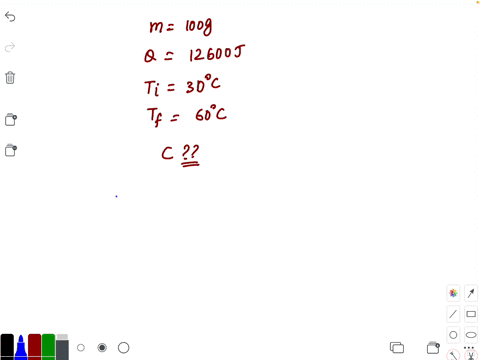 m = 100g
Q = 12600J
Ti = 30°C
Tf = 60°C
C ??